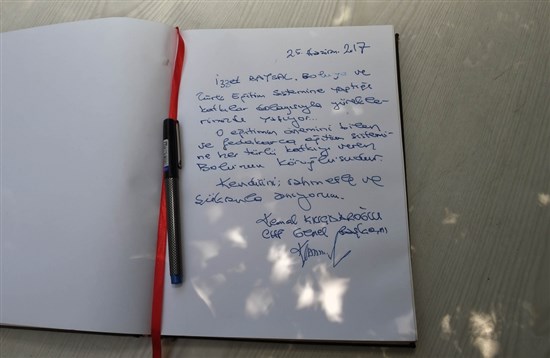 25 Haziran 2017
İzzet BAYSAL, Bolu'ya ve
Türk Eğitim Sistemine yaptığı
katkılar dolayısıyla yürekle-
rimizde yaşıyor...
O eğitimin önemini bilen
ve fedakarca eğitim sistemi-
ne her türlü katkıyı veren
Bolu'nun Köroğlusudur.
Kendisini rahmetle ve
şükranla anıyorum.
Kemal KILIÇDAROĞLU
CHP Genel Başkanı